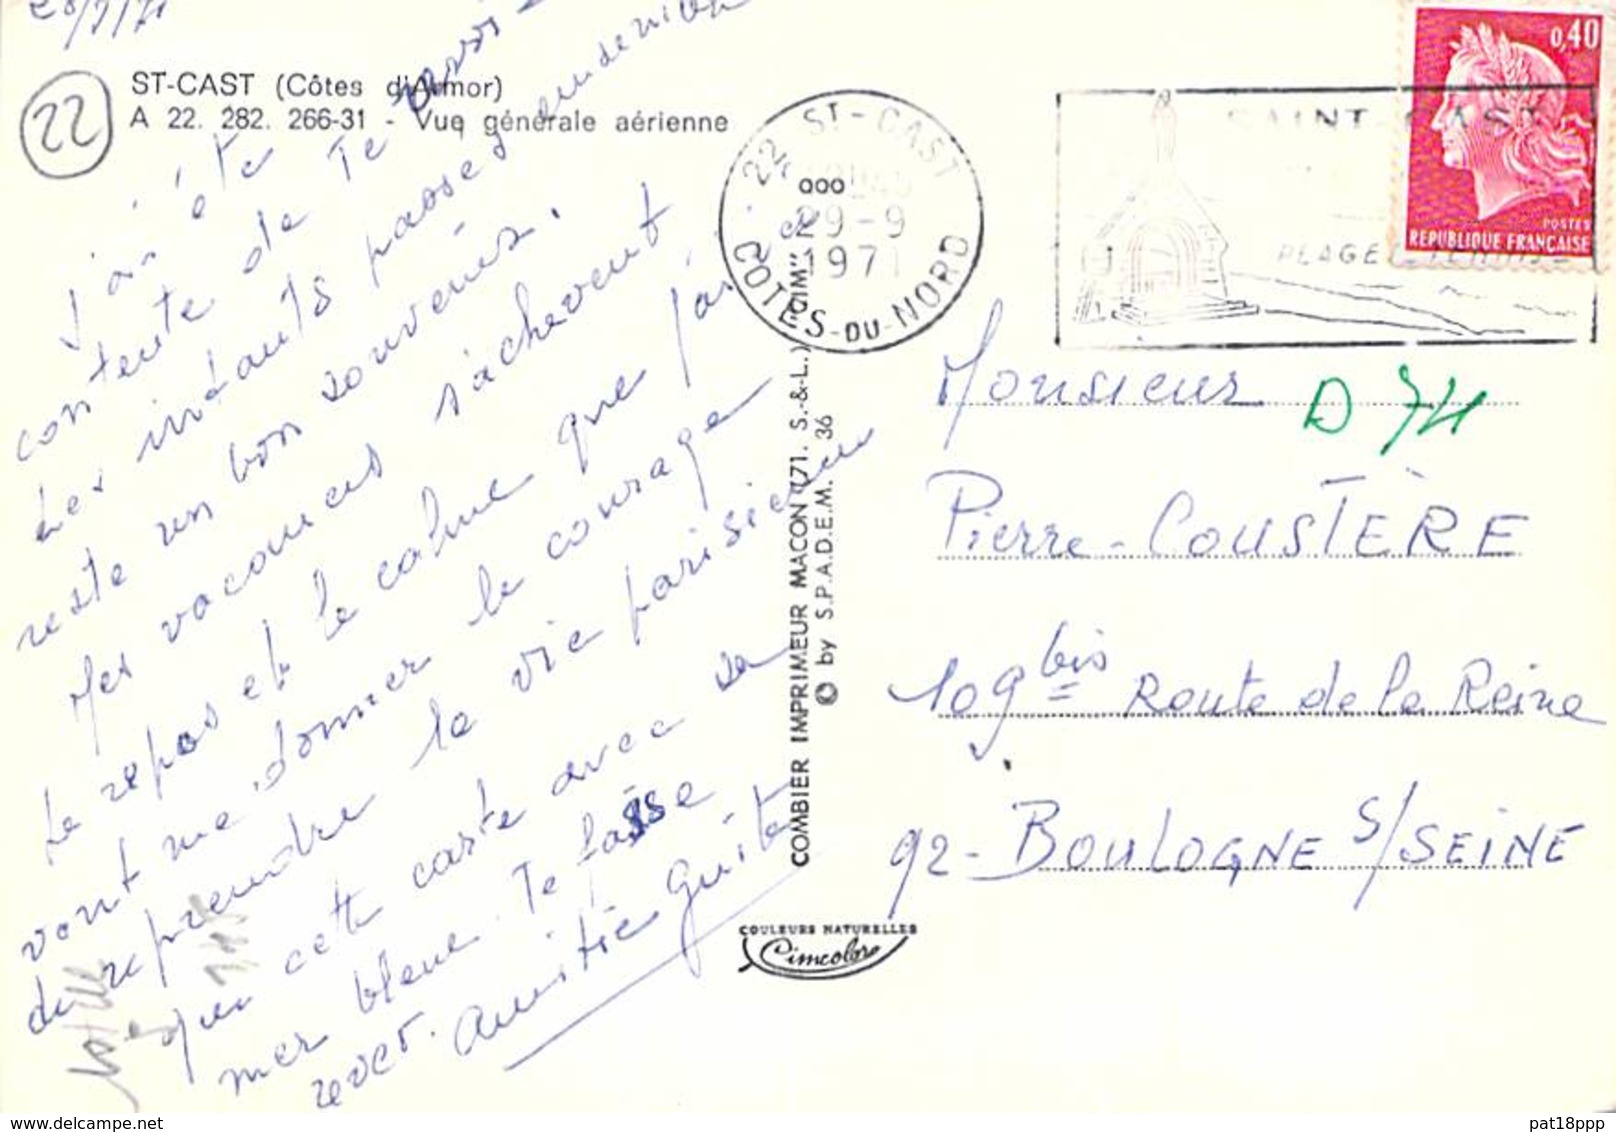 28/9/71
22
ST-CAST (Côtes d'Armor)
A 22. 282. 266-31 - Vue générale aérienne
j'ai été
contente de te
Les instants passés
reste un bon souvenirs.
Mes vacances s'achèvent
Le repos et le calme que j'ai
vont me donner le courage
de reprendre la vie parisienne
que cette carte avec sa
mer bleue. Te fasse
rever. Amitié Guite
COMBIER IMPRIMEUR MACON (71. S.-&-L.) "CIM"
© by S.P.A.D.E.M. 36
COULEURS NATURELLES
Cimcolor
22 ST-CAST
29-9
1971
COTES-DU-NORD
SAINT-CAST
PLAGE
0,40
POSTES
REPUBLIQUE FRANÇAISE
Monsieur
D 74
Pierre-COUSTÈRE
109 bis Route de la Reine
92-BOULOGNE S/SEINE
pat18ppp